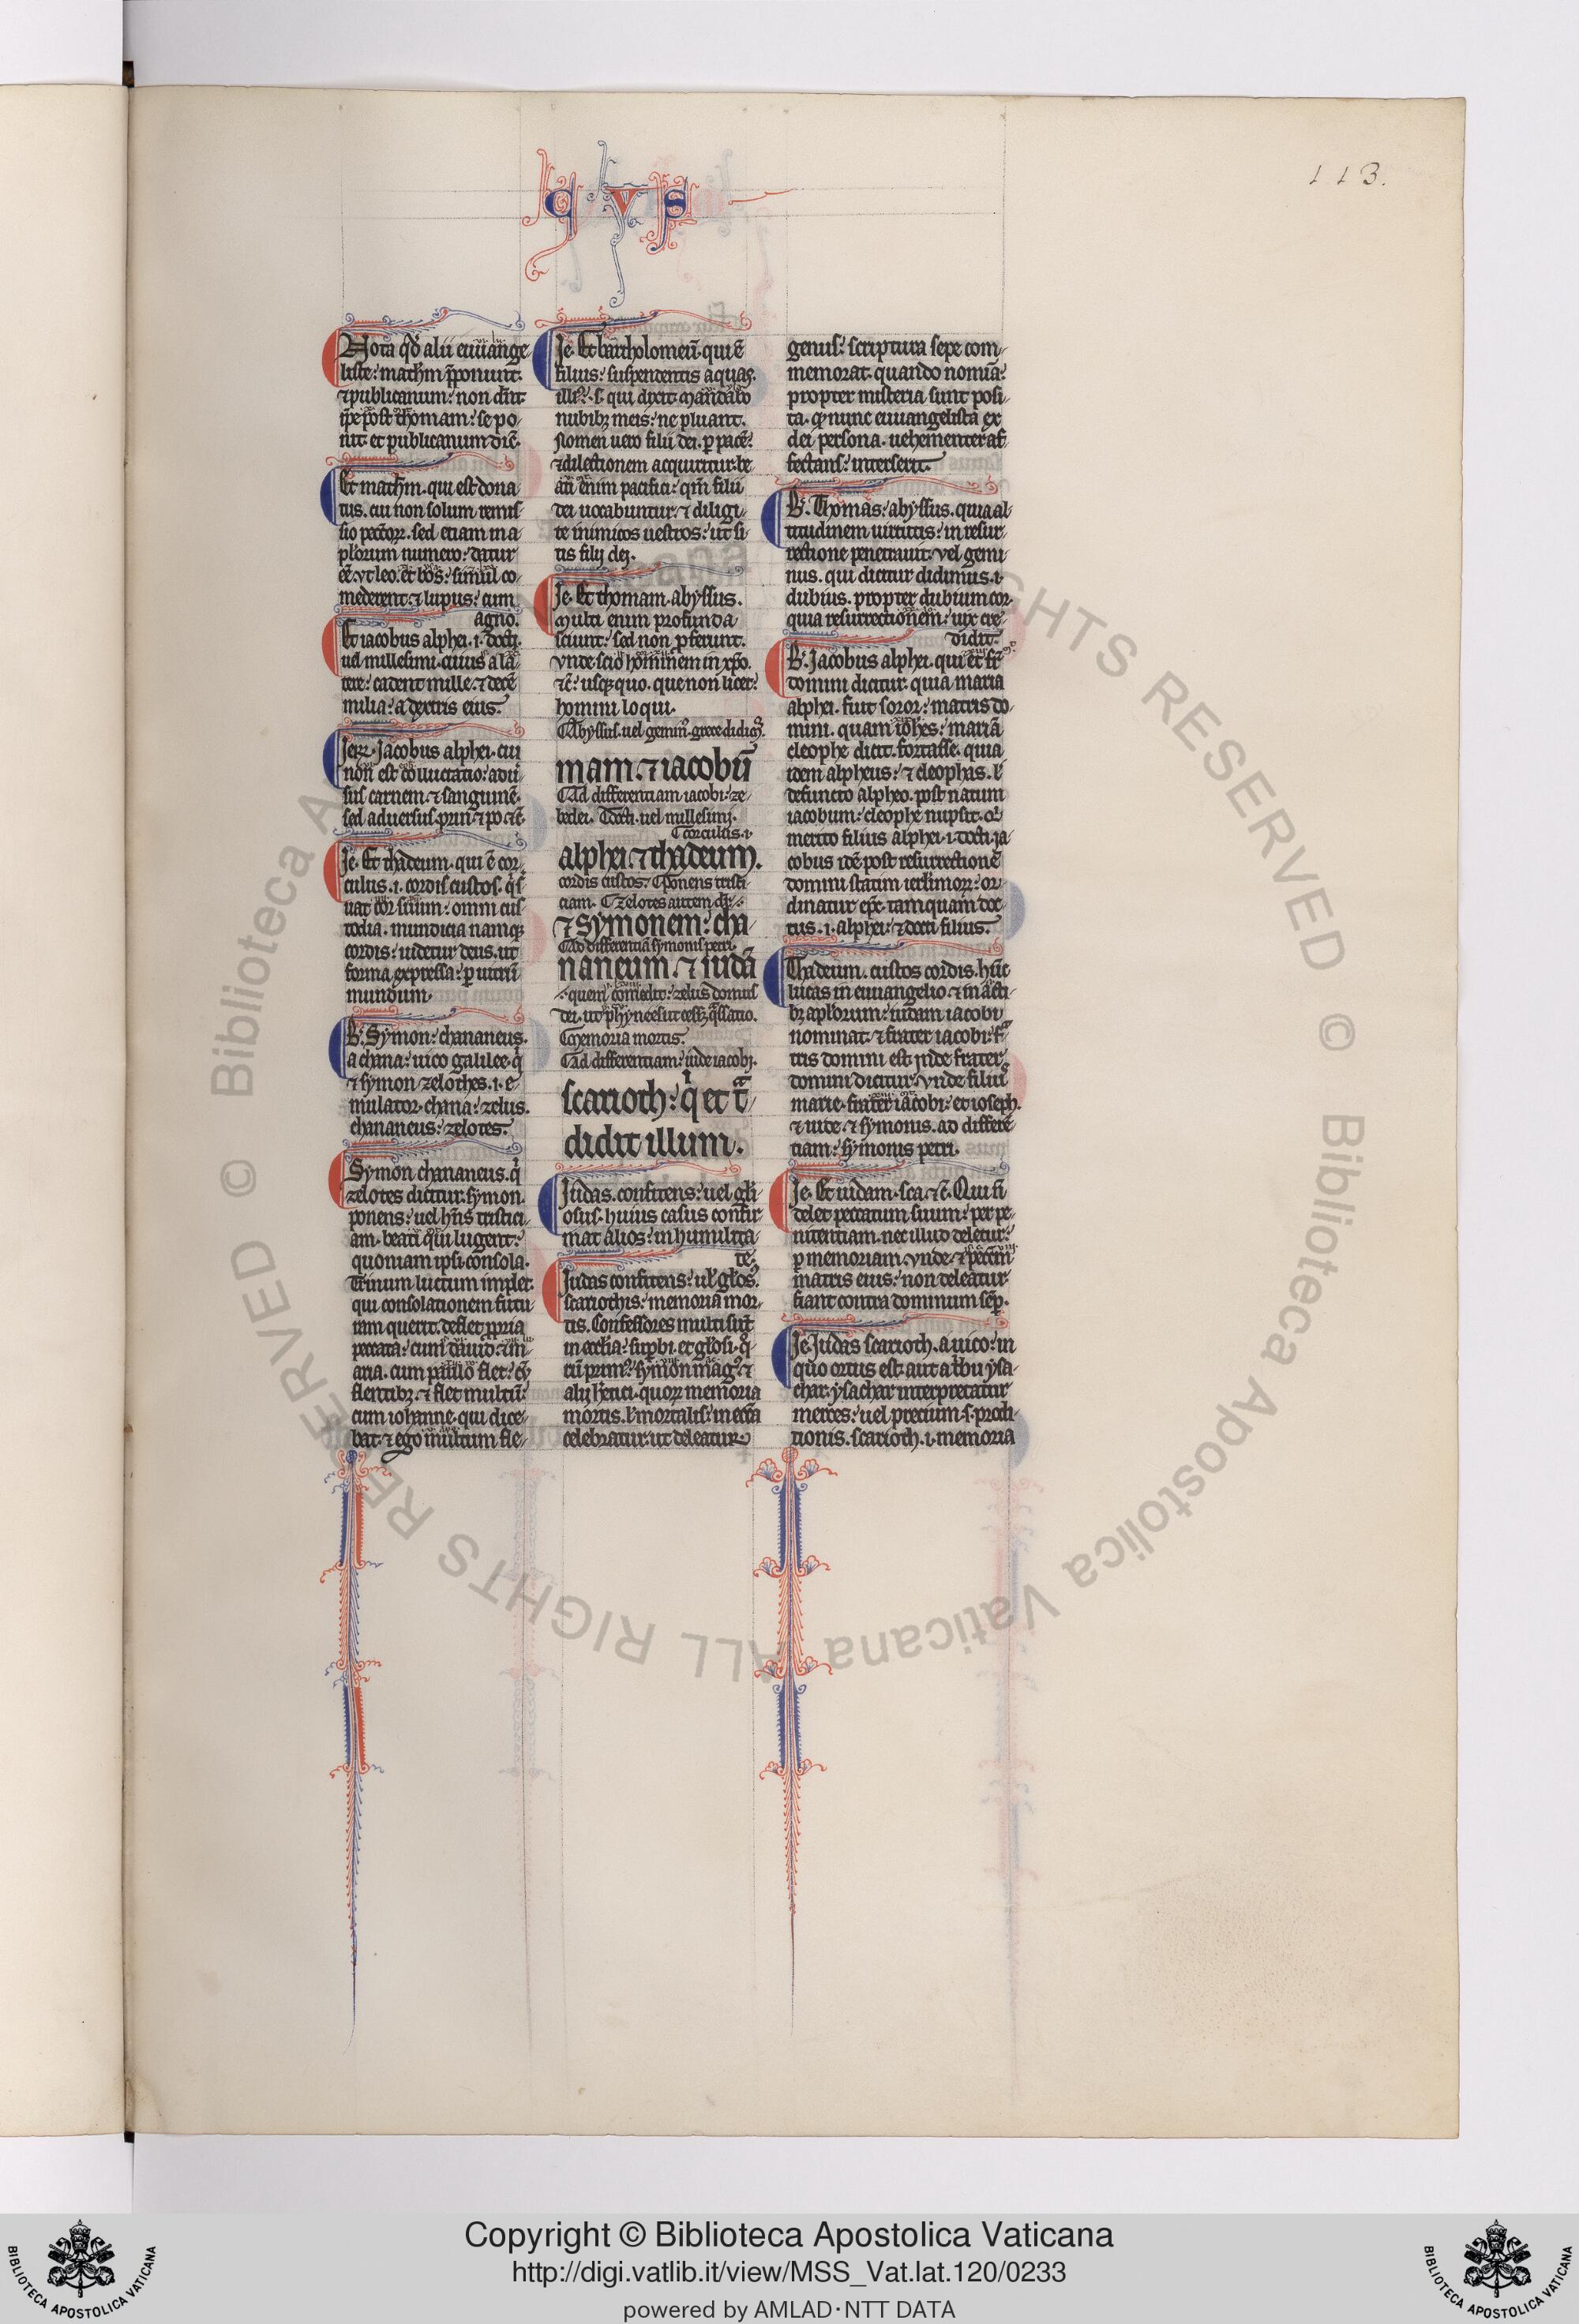 113.
cVS
Nota qđ alii euuange
liste: math̅m p̅ponunt.
⁊publicanum: non dn̅t
ip̅e post thomam: se po
nit. et publicanum dic̅.
Et math̅m. qui est dona
tus. cui non solum remis
sio pecc̅oꝝ. sed etiam in a
pl̅orum numero: datur
ee̅. vt leo. et bos: simul co
mederent. ⁊ lupus: cum
agno.
Et iacobus alphei .i. docti.
uel millesimi. cuius a la
tere: cadent mille. ⁊ dece̅
milia: a dextris eius.
Jacobus alphei. cui
non est colluctatio: adu̅
sus carnem. ⁊ sanguine̅.
sed aduersus. prin. ⁊ po. ⁊c̅.
Je. Et thadeum. qui e̅ cor
culus .i. cordis custos. q̇ s̅
uat cor suum: omni cus
todia. mundicia namqꝫ
cordis: uidetur deus. ut
forma expressa: ꝑ uitru̅
mundum.
B. Symon: chananeus.
a chana: uico galilee. q̇
⁊ symon zelothes .i. e
mulator. chana: zelus.
chananeus: zelotes.
Symon chananeus. q̇
zelotes dicitur. symon.
ponens: uel hn̅s tristici
am. beati qui lugent:
quoniam ipsi consola.
Trinum luctum implet.
qui consolationem futu
ram querit. deflet ꝓpria
peccata: cum dauid. ⁊ m
aria. cum paulo flet: cu̅
flentibꝫ. ⁊ flet multu̅:
cum iohanne. qui dice
bat. ⁊ ego multum fle
Je. Et bartholomeu̅. qui e̅
filius: suspendentis aquas.
ill'. s. qui dixit mandabo
nubibꝫ meis: ne pluant.
Nomen uero filii dei. ꝑ pace̅:
⁊ dilectionem acquiritur. be
ati enim pacifici: qm̅ filii
dei uocabuntur. ⁊ diligi
te inimicos uestros: ut si
tis filij dei.
Je. Et thomam. abyssus.
Multi enim profunda
sciunt: sed non ꝓferunt.
vnde scio hominem in xp̅o.
⁊c̅. usqꝫ quo. que non licet:
homini loqui.
Abyssus. uel gemin'. grece didim'.
mam. ⁊ iacobu̅
Ad differentiam. iacobi: ze
bedei. Docti. uel millesimi.
Corculus .i.
alphei. ⁊ thadeum.
cordis custos: Ponens tristi
ciam. Zelotes autem dr̅.
⁊ symonem: cha
Ad differentia̅ symonis petri.
naneum. ⁊ iuda̅
quem comedit: zelus domus
Memoria mortis.
Ad differentiam: iude iacobi.
scarioth: q̇ et t̅
didit illum.
Iudas. confitens: uel gl̅i
osus. huius casus confir
mat alios: in humilita
te.
Iudas confitens: ul' gl̅os'.
scariothis: memoria mor
tis. Confessores multi su̅t
in eccl̅ia: suꝑbi. et gl̅osi. q̊
ru̅ prim': symon mag'. ⁊
alij h̅etici. quoꝝ memoria
mortis. ł mortalis: in ecc̅a
celebratur. ut deleatur
genus: scriptura sepe com
memorat. quando nomi̅a:
propter misteria sunt posi
ta. qd̅ nunc euuangelista ex
dei persona. uehementer af
fectans: inserit.
B. Thomas: abyssus. quia al
titudinem uirtutis: in resur
rectione penetrauit. vel gemi
nus. qui dicitur didimus .i.
dubius. propter dubium cor.
quia resurrectionem: uix cre
didit.
B. Jacobus alphei. qui et fr̅
domini dicitur. quia maria
alphei. fuit soror: matris do
mini. quam ioh̅es: maria̅
cleophe dicit. fortasse. quia
idem alpheus: ⁊ cleophas. ł
defuncto alpheo. post natum
iacobum: cleophe nupsit.
merito filius alphei .i. docti. ia
cobus ide̅ post resurrectione̅
domini statim ierl̅imoꝝ: or
dinatur ep̅c. tamquam doc
tus .i. alphei: ⁊ docti filius.
Thadeum. custos cordis. hu̅c
lucas in euuangelio. ⁊ in acti
bꝫ apl̅orum: iudam iacobi
nominat. ⁊ frater iacobi: f̅
tris domini est. vnde frater
domini dicitur. vnde filius
marie. frater iacobi: et ioseph.
⁊ iude. ⁊ symonis. ad differe̅
tiam: symonis petri.
Je. Et iudam. sca. ⁊c̅. Qui si
delet peccatum suum: per pe
nitentiam. nec illud deletur:
ꝑ memoriam. vnde. ⁊ pecc̅m
matris eius: non deleatur.
fiant contra dominum seꝑ.
Je. Judas scarioth. a uico: in
quo ortus est. aut a tribu ysa
char. ysachar interpretatur
merces: uel precium. s. prodi
tionis. scarioth .i. memoria
© Biblioteca Apostolica Vaticana ALL RIGHTS RESERVED © Biblioteca Apostolica Vaticana ALL RIGHTS RESERVED
BIBLIOTECA APOSTOLICA VATICANA
Copyright © Biblioteca Apostolica Vaticana
http://digi.vatlib.it/view/MSS_Vat.lat.120/0233
powered by AMLAD·NTT DATA
BIBLIOTECA APOSTOLICA VATICANA